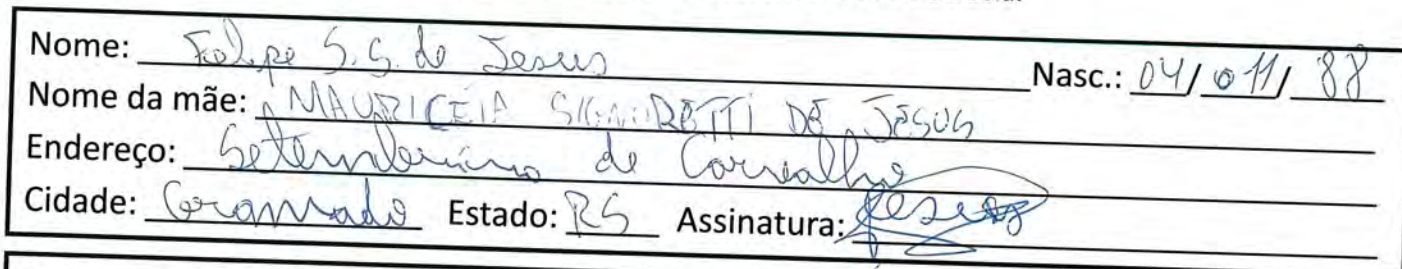 Nome: Felipe S. S. de Jesus Nasc.: 04/011/88
Nome da mãe: MAURICEIA DE JESUS
Endereço: Setembrino de Carvalho
Cidade: Gramado Estado: RS Assinatura: Jesus